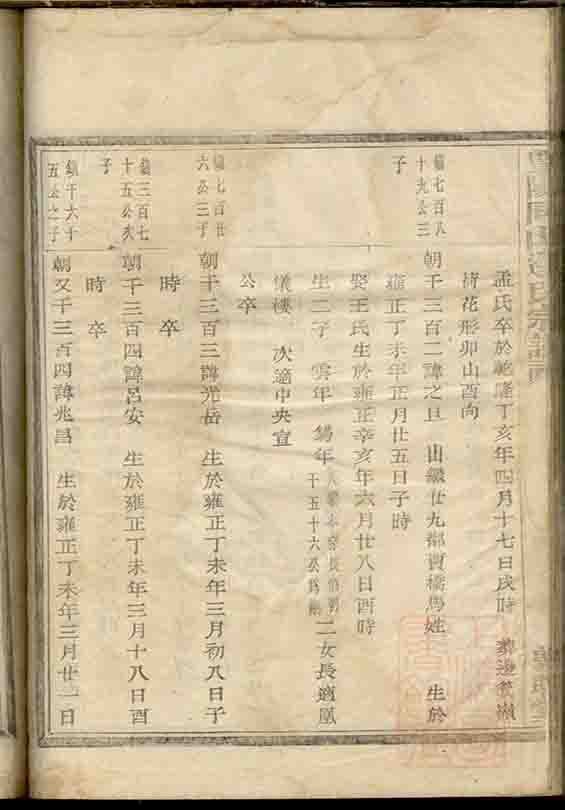 孟氏卒於乾隆丁亥年四月十七日戌時
荷花形卯山酉向
鎮七百八
十九公三
子
朝千三百二諱之旦 山嚴廿九都賈橋馬姓 生於
雍正丁未年正月廿五日子時
娶王氏生於雍正辛亥年六月廿八日酉時
生二子 雲年 錫年
十五十六公爲嗣
二女長適凰
儀樓 次適中央宣
公卒
鎮七百廿
六公三子
朝千三百三諱光岳 生於雍正丁未年三月初八日子
時 卒
鎮三百七
十五公次
子
朝千三百四諱呂安 生於雍正丁未年三月十八日酉
時 卒
鎮千六十
五公之子
朝又千三百四諱兆昌 生於雍正丁未年三月廿一日